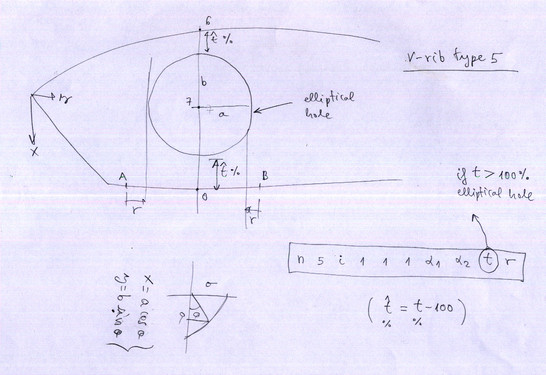 6
t̂ %
V-rib type 5
b
7
a
elliptical
hole
y
x
A
t̂ %
B
0
r
r
if t > 100%
elliptical hole
n 5 i 1 1 1 α1 α2 t r
( t̂ = t - 100 )
% %
x = a cos φ
y = b sin φ